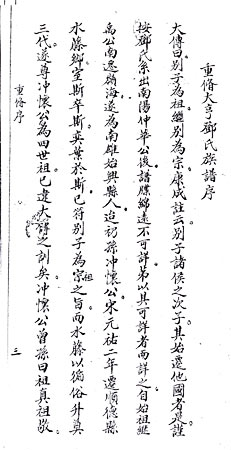 重脩大亨鄧氏族譜序
大傳曰別子為祖繼別為宗康成註云別子諸侯之次子其始遷他國者是謹
按鄧氏系出南陽仲華公後譜牒綿遠不可詳弟以其可詳者而詳之自始祖繼
禹公南逸嶺海遂為南雄始興縣人迨初孫冲懷公宋元祐二年遷順德縣
水藤鄉室斯卒斯奕葉於斯已符別子為宗祖之旨而水藤以徇俗升奠
三代遂尊冲懷公為四世祖已違大傳之訓矣冲懷公曾孫曰祖真祖敬
重脩序
三